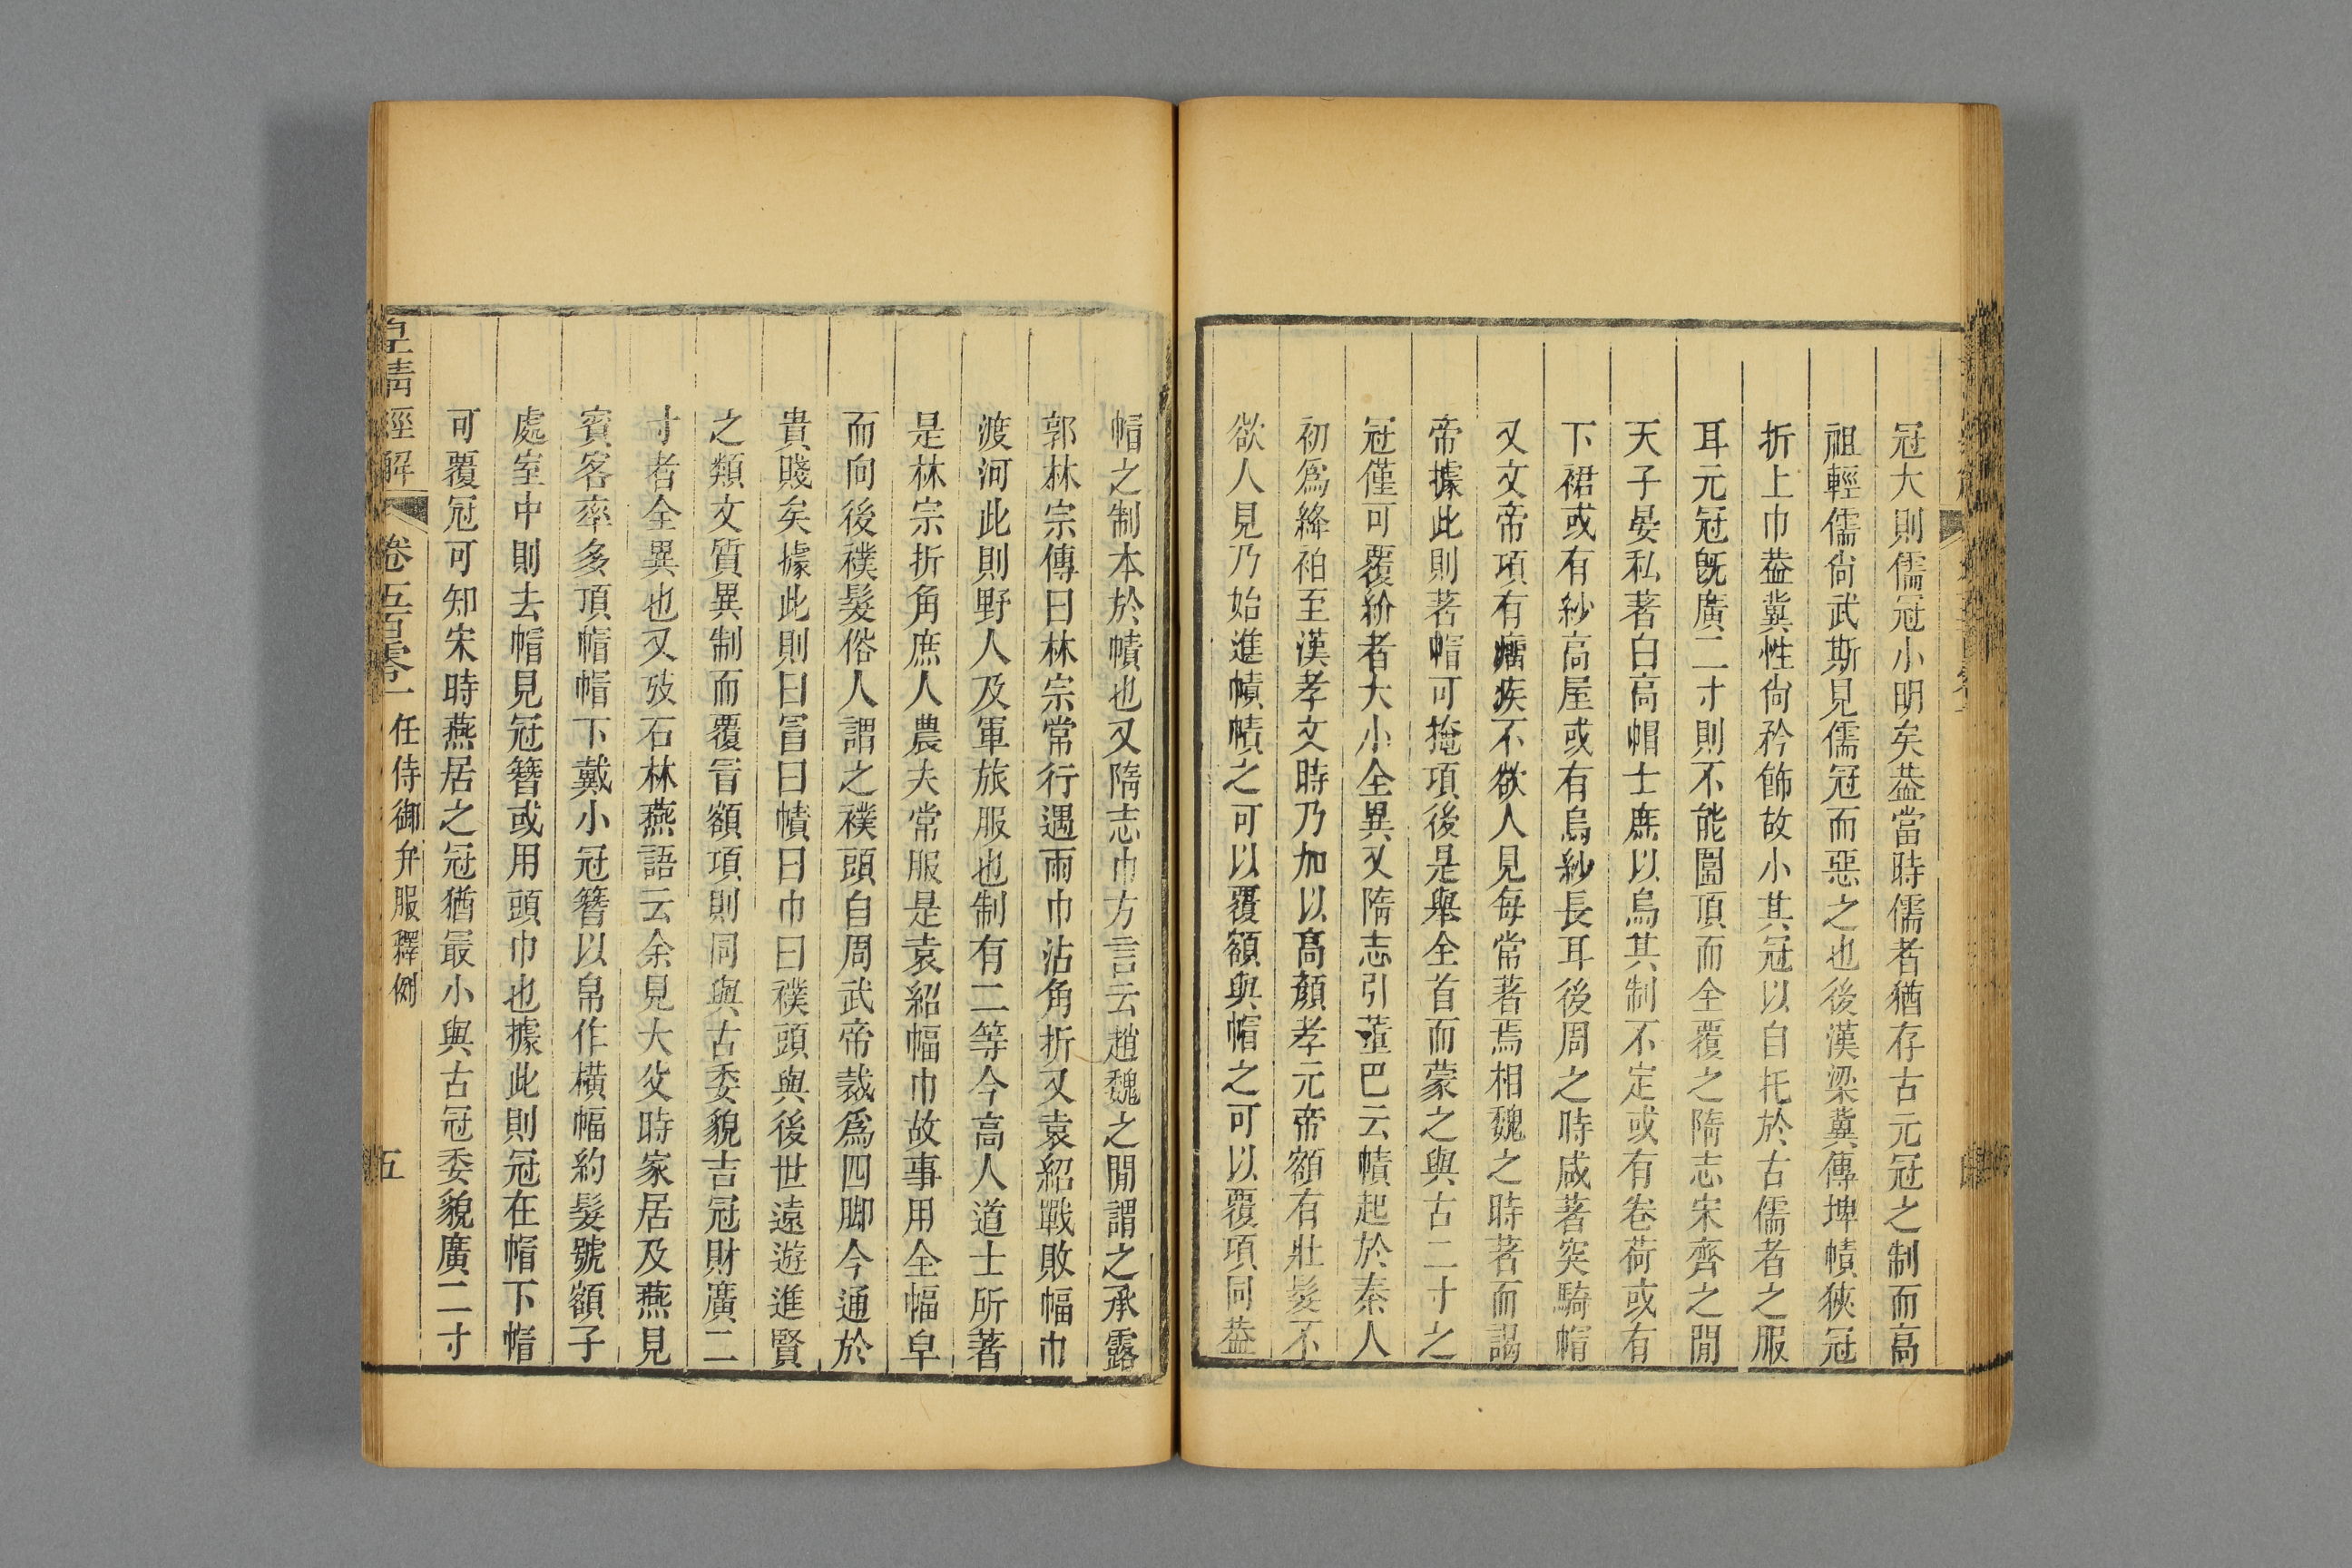 冠大則儒冠小明矣葢當時儒者猶存古元冠之制而高
祖輕儒尙武斯見儒冠而惡之也後漢梁冀傳埤幘狹冠
折上巾葢冀性尙矜飾故小其冠以自托於古儒者之服
耳元冠旣廣二寸則不能圍頂而全覆之隋志宋齊之閒
天子晏私著白高帽士庶以烏其制不定或有卷荷或有
下裙或有紗高屋或有烏紗長耳後周之時咸著突騎帽
又文帝項有瘤疾不欲人見每常著焉相魏之時著而謁
帝據此則著帽可掩項後是舉全首而蒙之與古二寸之
冠僅可覆紒者大小全異又隋志引董巴云幘起於秦人
初爲絳袙至漢孝文時乃加以高顏孝元帝額有壯髮不
欲人見乃始進幘幘之可以覆額與帽之可以覆項同葢
帽之制本於幘也又隋志巾方言云趙魏之閒謂之承露
郭林宗傳曰林宗常行遇雨巾沾角折又袁紹戰敗幅巾
渡河此則野人及軍旅服也制有二等今高人道士所著
是林宗折角庶人農夫常服是袁紹幅巾故事用全幅皁
而向後襆髮俗人謂之襆頭自周武帝裁爲四脚今通於
貴賤矣據此則曰冒曰幘曰巾曰襆頭與後世遠遊進賢
之類文質異制而覆冒額項則同與古委貌吉冠財廣二
寸者全異也又攷石林燕語云余見大父時家居及燕見
賓客率多頂帽帽下戴小冠簪以帛作橫幅約髮號額子
處室中則去帽見冠簪或用頭巾也據此則冠在帽下帽
可覆冠可知宋時燕居之冠猶最小與古冠委貌廣二寸
皇清經解 卷五百零一 任侍御弁服釋例 五